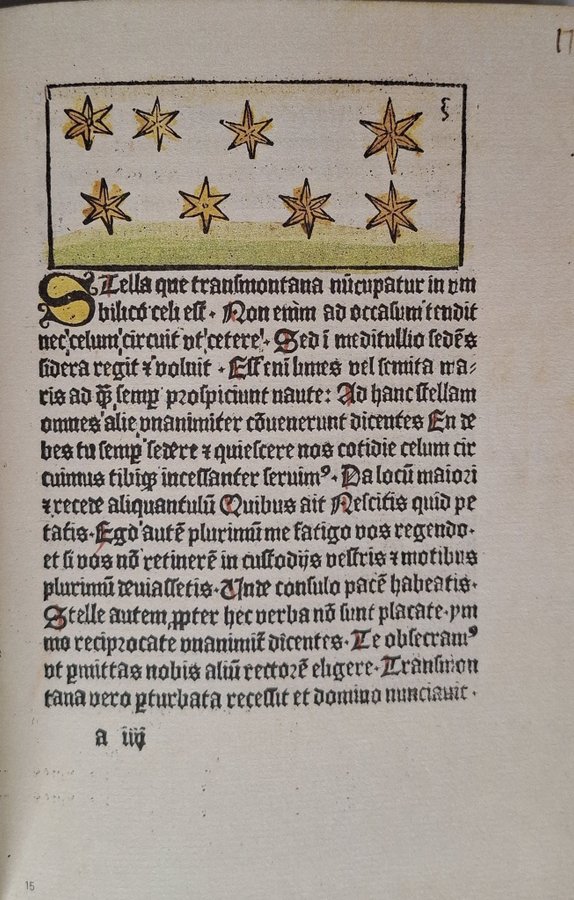 17
STella que transmontana nūcupatur in vm
bilico celi est · Non enim ad occasum tendit
nec celum circuit vt cetere · Sed ī meditullio sedēs
sidera regit ⁊ voluit · Est enī limes vel semita ma⸗
ris ad q̄ꝫ semꝑ prospiciunt naute: Ad hanc stellam
omnes alie vnanimiter cōuenerunt dicentes En de
bes tu semꝑ sedere ⁊ quiescere nos cotidie celum cir
cuimus tibiqꝫ incessanter seruimꝰ · Da locū maiori
⁊ recede aliquantulū Quibus ait Nescitis quid pe
tatis · Ego autē plurimū me fatigo vos regendo ·
et si vos nō retinerē in custodijs vestris ⁊ motibus
plurimū deuiassetis · Unde consulo pacē habeatis ·
Stelle autem ꝓpter hec verba nō sunt placate · ym
mo reciprocate vnanimit̄ dicentes · Te obsecramꝰ
vt ꝑmittas nobis aliū rectorē eligere · Transmon
tana vero ꝑturbata recessit et domino nunciauit ·
a iiij
15